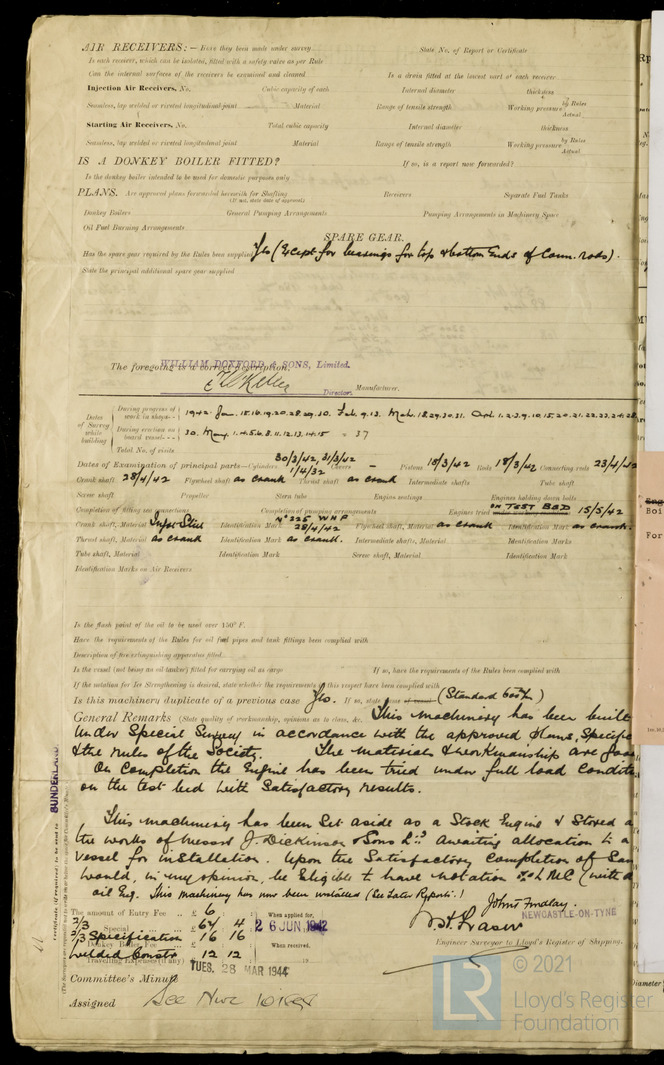 AIR RECEIVERS:— Have they been made under survey State No. of Report or Certificate
Is each receiver, which can be isolated, fitted with a safety valve as per Rule
Can the internal surfaces of the receivers be examined and cleaned Is a drain fitted at the lowest part of each receiver
Injection Air Receivers, No. Cubic capacity of each Internal diameter thickness
Seamless, lap welded or riveted longitudinal joint Material Range of tensile strength Working pressure by Rules Actual
Starting Air Receivers, No. Total cubic capacity Internal diameter thickness
Seamless, lap welded or riveted longitudinal joint Material Range of tensile strength Working pressure by Rules Actual
IS A DONKEY BOILER FITTED? If so, is a report now forwarded?
Is the donkey boiler intended to be used for domestic purposes only
PLANS. Are approved plans forwarded herewith for Shafting Receivers Separate Fuel Tanks
(If not, state date of approval)
Donkey Boilers General Pumping Arrangements Pumping Arrangements in Machinery Space
Oil Fuel Burning Arrangements
SPARE GEAR.
Has the spare gear required by the Rules been supplied Yes (Except for bearings for top & bottom Ends of Conn. rods).
State the principal additional spare gear supplied
WILLIAM DOXFORD & SONS, Limited.
The foregoing is a correct description,
Director. Manufacturer.
Dates of Survey while building
During progress of work in shops-- 1942. Jan. 15.16.19.20.28.29.30. Feb. 9.13. Mch. 18.29.30.31. Apl. 1.2.3.9.10.15.20.21.22.23.24.28
During erection on board vessel--- 30. May. 1.4.5.6.8.11.12.13.14.15 = 37
Total No. of visits
Dates of Examination of principal parts—Cylinders 30/3/42, 31/3/42 1/4/32 Covers – Pistons 18/3/42 Rods 18/3/42 Connecting rods 23/4/42
Crank shaft 28/4/42 Flywheel shaft as crank Thrust shaft as crank Intermediate shafts Tube shaft
Screw shaft Propeller Stern tube Engine seatings Engines holding down bolts
Completion of fitting sea connections Completion of pumping arrangements Engines tried ON TEST BED 15/5/42
Crank shaft, Material Ingot Steel Identification Mark Nº 225 WHP 28/4/42 Flywheel shaft, Material as crank Identification Mark as crank.
Thrust shaft, Material as crank Identification Mark as crank. Intermediate shafts, Material Identification Marks
Tube shaft, Material Identification Mark Screw shaft, Material Identification Mark
Identification Marks on Air Receivers
Is the flash point of the oil to be used over 150° F.
Have the requirements of the Rules for oil fuel pipes and tank fittings been complied with
Description of fire extinguishing apparatus fitted
Is the vessel (not being an oil tanker) fitted for carrying oil as cargo If so, have the requirements of the Rules been complied with
If the notation for Ice Strengthening is desired, state whether the requirements in this respect have been complied with
Is this machinery duplicate of a previous case Yes. If so, state name of vessel (Standard
General Remarks (State quality of workmanship, opinions as to class, &c. This machinery has been built
Under Special Survey in accordance with the approved plans, Specific
& the rules of the Society. The materials & workmanship are good
On completion the Engine has been tried under full load condit
on the test bed with Satisfactory results.
This machinery has been Set aside as a Stock Engine & Stored a
the works of Messrs J. Dickinson & Sons Ltd awaiting allocation to a
Vessel for installation. Upon the Satisfactory Completion of Sam
would, in my opinion, be Eligible to have notation + LMC (with d
oil Eng. This machinery has now been installed (See Later Report.)
SUNDERLAND
Certificate (if required) to be sent to
The amount of Entry Fee .. £ 6
2/3 Special £ 64 4
2/3 Specification £ 16 16
Donkey Boiler Fee
Welded Constr £ 12 12
Travelling Expenses (if any) £
When applied for,
26 JUN 1942
When received,
John Findlay.
W.H. Fraser
NEWCASTLE-ON-TYNE
Engineer Surveyor to Lloyd's Register of Shipping.
Committee's Minute TUES. 28 MAR 1944
Assigned See Nwc
LR
© 2021
Lloyd's Register
Foundation